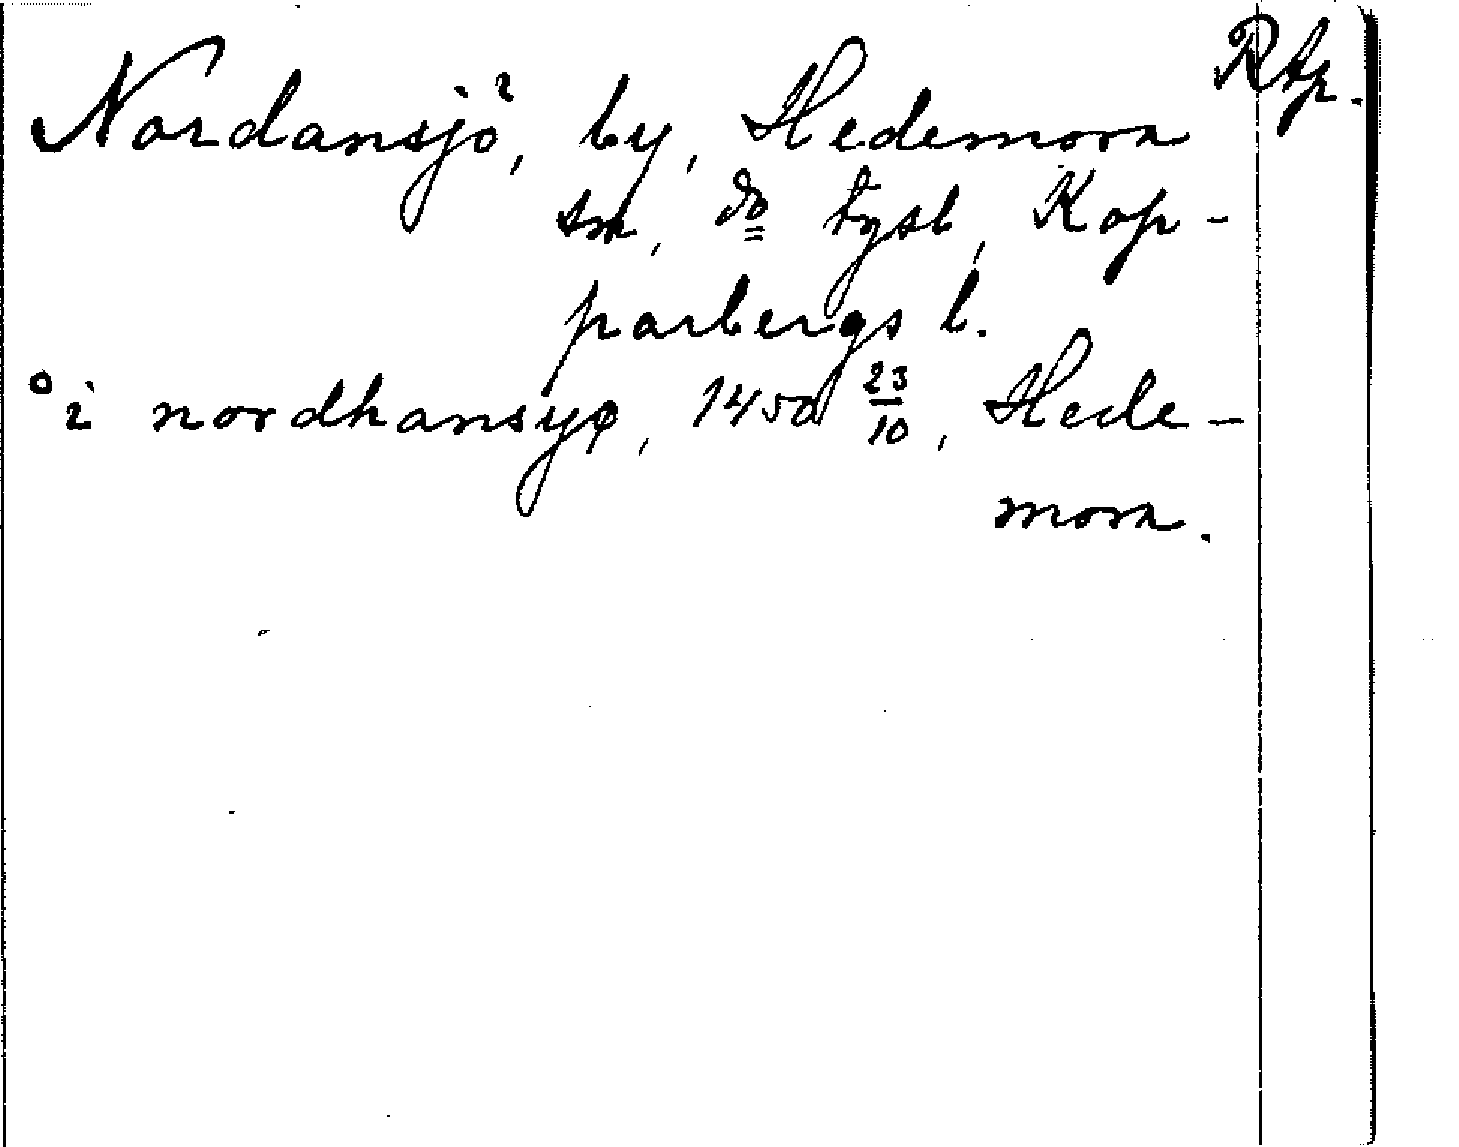 Rtp.
Nordansjö, by, Hedemora
sn, do tgsl, Kop-
parbergs l.
° i nordhansyø, 1450 23/10, Hede-
mora.